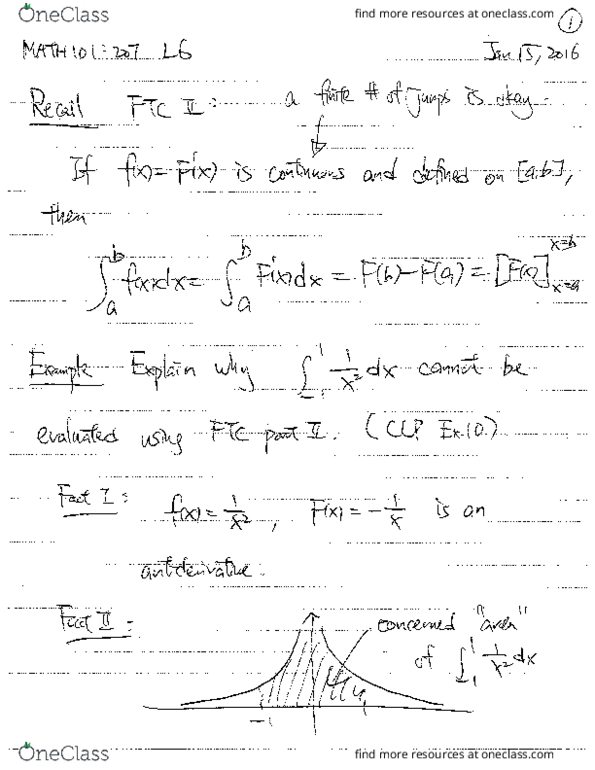 OneClass
find more resources at oneclass.com
1
MATH101:207 L6
Jan 15, 2016
Recall FTC II: a finite # of jumps is okay.
If f(x)=F'(x) is continuous and defined on [a,b],
then
∫_a^b f(x)dx = ∫_a^b F'(x)dx = F(b)-F(a) = [F(x)]_{x=a}^{x=b}
Example Explain why ∫_{-1}^1 1/x² dx cannot be
evaluated using FTC part II. (CLP Ex.10.)
Fact I: f(x)=1/x², F(x)=-1/x is an
antiderivative.
Fact II: concerned "area"
of ∫_{-1}^1 1/x² dx
-1 1
OneClass
find more resources at oneclass.com